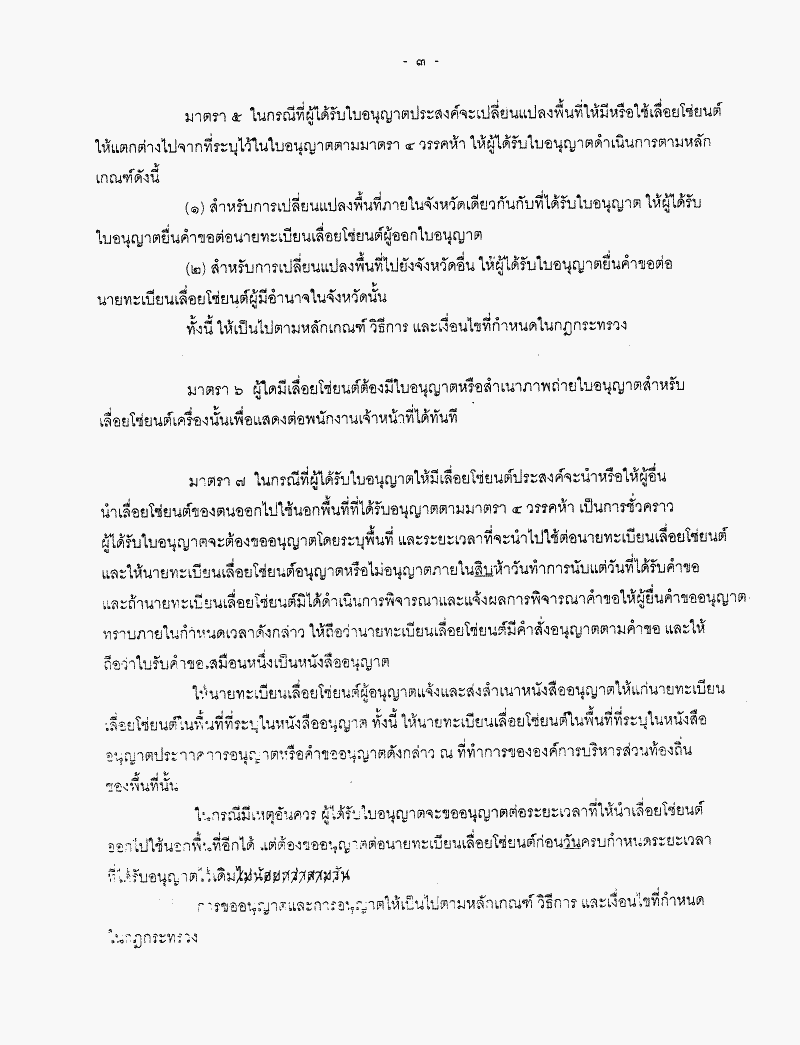 - ๓ -
มาตรา ๕ ในกรณีที่ผู้ได้รับใบอนุญาตประสงค์จะเปลี่ยนแปลงพื้นที่ให้มีหรือใช้เลื่อยโซ่ยนต์
ให้แตกต่างไปจากที่ระบุไว้ในใบอนุญาตตามมาตรา ๔ วรรคห้า ให้ผู้ได้รับใบอนุญาตดำเนินการตามหลัก
เกณฑ์ดังนี้
(๑) สำหรับการเปลี่ยนแปลงพื้นที่ภายในจังหวัดเดียวกันกับที่ได้รับใบอนุญาต ให้ผู้ได้รับ
ใบอนุญาตยื่นคำขอต่อนายทะเบียนเลื่อยโซ่ยนต์ผู้ออกใบอนุญาต
(๒) สำหรับการเปลี่ยนแปลงพื้นที่ไปยังจังหวัดอื่น ให้ผู้ได้รับใบอนุญาตยื่นคำขอต่อ
นายทะเบียนเลื่อยโซ่ยนต์ผู้มีอำนาจในจังหวัดนั้น
ทั้งนี้ ให้เป็นไปตามหลักเกณฑ์ วิธีการ และเงื่อนไขที่กำหนดในกฎกระทรวง
มาตรา ๖ ผู้ใดมีเลื่อยโซ่ยนต์ต้องมีใบอนุญาตหรือสำเนาภาพถ่ายใบอนุญาตสำหรับ
เลื่อยโซ่ยนต์เครื่องนั้นเพื่อแสดงต่อพนักงานเจ้าหน้าที่ได้ทันที
มาตรา ๗ ในกรณีที่ผู้ได้รับใบอนุญาตให้มีเลื่อยโซ่ยนต์ประสงค์จะนำหรือให้ผู้อื่น
นำเลื่อยโซ่ยนต์ของตนออกไปใช้นอกพื้นที่ที่ได้รับอนุญาตตามมาตรา ๔ วรรคห้า เป็นการชั่วคราว
ผู้ได้รับใบอนุญาตจะต้องขออนุญาตโดยระบุพื้นที่ และระยะเวลาที่จะนำไปใช้ต่อนายทะเบียนเลื่อยโซ่ยนต์
และให้นายทะเบียนเลื่อยโซ่ยนต์อนุญาตหรือไม่อนุญาตภายในสิบห้าวันทำการนับแต่วันที่ได้รับคำขอ
และถ้านายทะเบียนเลื่อยโซ่ยนต์มิได้ดำเนินการพิจารณาและแจ้งผลการพิจารณาคำขอให้ผู้ยื่นคำขออนุญาต
ทราบภายในกำหนดเวลาดังกล่าว ให้ถือว่านายทะเบียนเลื่อยโซ่ยนต์มีคำสั่งอนุญาตตามคำขอ และให้
ถือว่าใบรับคำขอเสมือนหนึ่งเป็นหนังสืออนุญาต
ให้นายทะเบียนเลื่อยโซ่ยนต์ผู้อนุญาตแจ้งและส่งสำเนาหนังสืออนุญาตให้แก่นายทะเบียน
เลื่อยโซ่ยนต์ในพื้นที่ที่ระบุในหนังสืออนุญาต ทั้งนี้ ให้นายทะเบียนเลื่อยโซ่ยนต์ในพื้นที่ที่ระบุในหนังสือ
อนุญาตประกาศการอนุญาตหรือคำขออนุญาตดังกล่าว ณ ที่ทำการขององค์การบริหารส่วนท้องถิ่น
ของพื้นที่นั้น
ในกรณีมีเหตุอันควร ผู้ได้รับใบอนุญาตจะขออนุญาตต่อระยะเวลาที่ให้นำเลื่อยโซ่ยนต์
ออกไปใช้นอกพื้นที่อีกได้ แต่ต้องขออนุญาตต่อนายทะเบียนเลื่อยโซ่ยนต์ก่อนวันครบกำหนดระยะเวลา
ที่ได้รับอนุญาตไว้เดิมไม่น้อยกว่าสามวัน
การขออนุญาตและการอนุญาตให้เป็นไปตามหลักเกณฑ์ วิธีการ และเงื่อนไขที่กำหนด
ในกฎกระทรวง